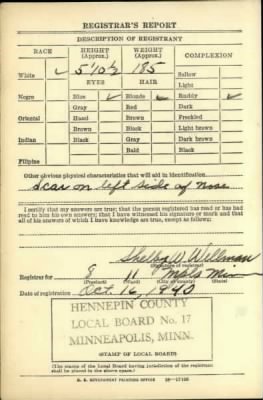 REGISTRAR'S REPORT
DESCRIPTION OF REGISTRANT
RACE HEIGHT (Approx.) WEIGHT (Approx.) COMPLEXION
White ✓ 5' 10½ 185 Sallow
EYES HAIR Light
Negro Blue ✓ Blonde ✓ Ruddy ✓
Gray Red Dark
Oriental Hazel Brown Freckled
Brown Black Light brown
Indian Black Gray Dark brown
Bald Black
Filipino
Other obvious physical characteristics that will aid in identification
Scar on left side of nose
I certify that my answers are true; that the person registered has read or has had
read to him his own answers; that I have witnessed his signature or mark and that
all of his answers of which I have knowledge are true, except as follows:
Shelby W. Willman
(Signature of registrar)
Registrar for 8 11 Mpls Minn
(Precinct) (Ward) (City or county) (State)
Date of registration Oct. 16, 1940
HENNEPIN COUNTY
LOCAL BOARD No. 17
MINNEAPOLIS, MINN.
(STAMP OF LOCAL BOARD)
(The stamp of the Local Board having jurisdiction of the registrant
shall be placed in the above space.)
U. S. GOVERNMENT PRINTING OFFICE